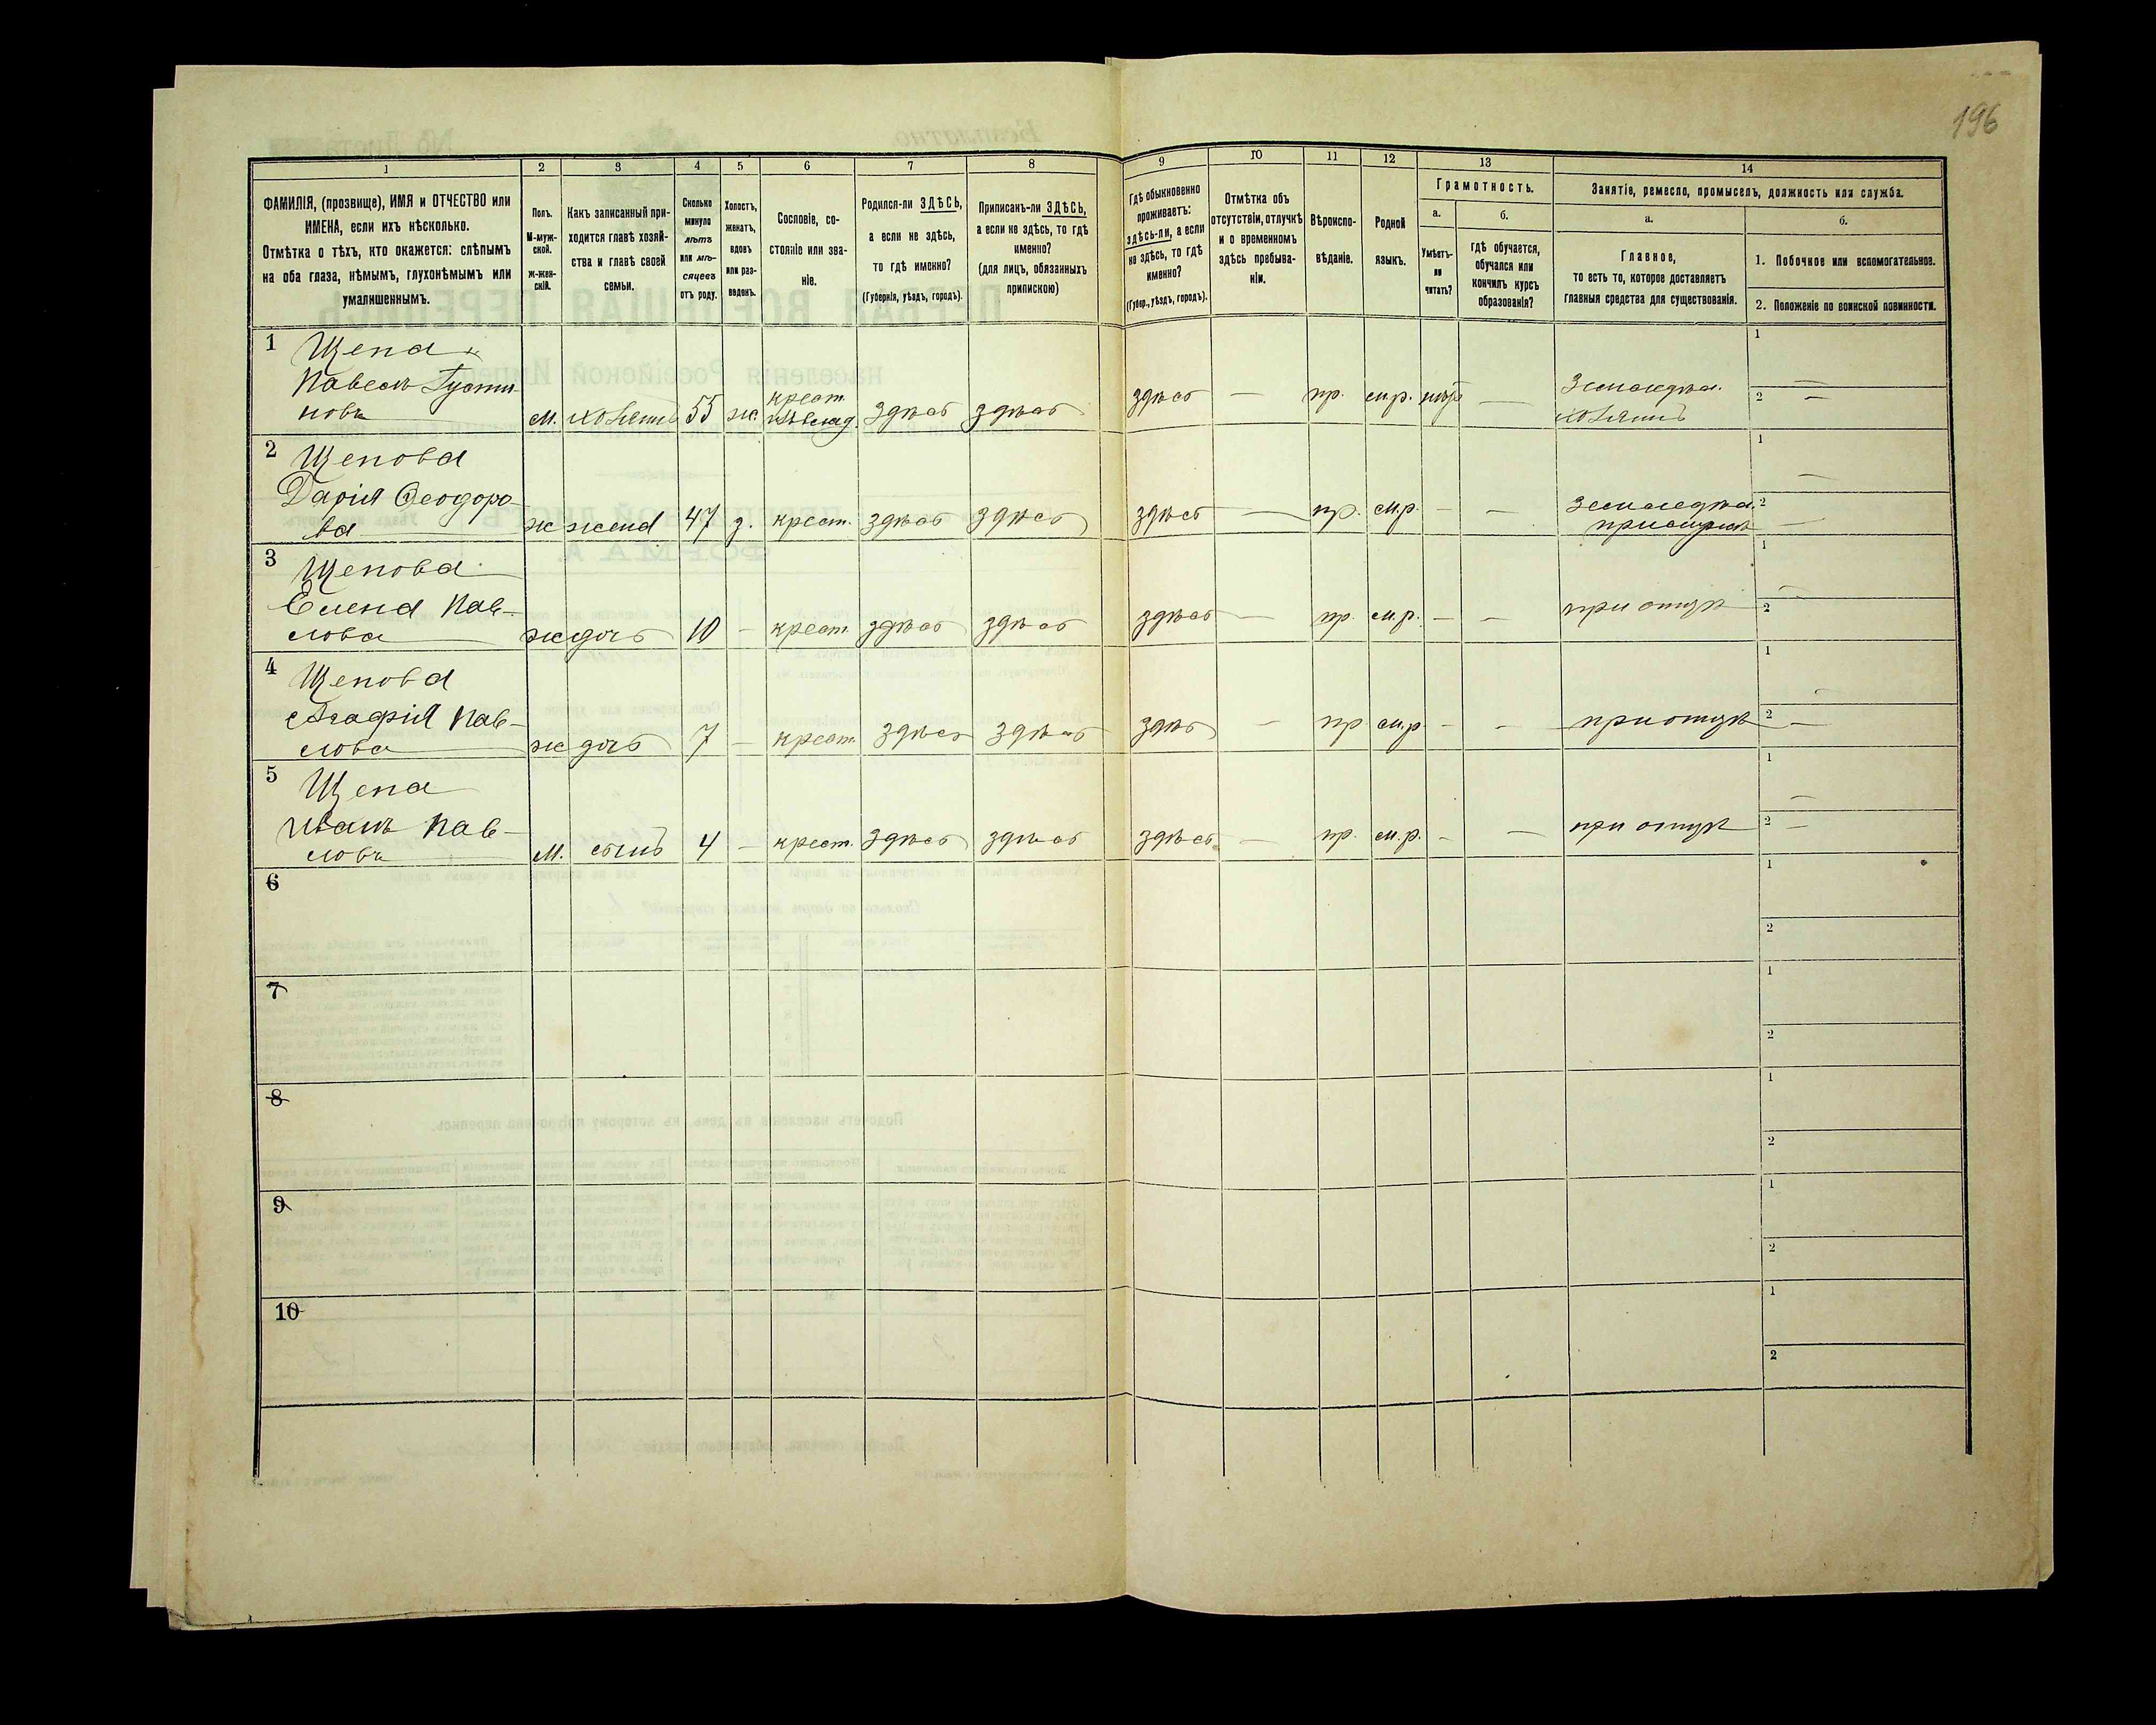 196
1
2
3
4
5
6
7
8
9
10
11
12
13
14
ФАМИЛІЯ, (прозвище), ИМЯ и ОТЧЕСТВО или
ИМЕНА, если ихъ нѣсколько.
Отмѣтка о тѣхъ, кто окажется: слѣпымъ
на оба глаза, нѣмымъ, глухонѣмымъ или
умалишеннымъ.
Полъ.
М-муж-
ской.
Ж-жен-
скій.
Какъ записанный при-
ходится главѣ хозяй-
ства и главѣ своей
семьи.
Сколько
минуло
лѣтъ
или мѣ-
сяцевъ
отъ роду.
Холостъ,
женатъ,
вдовъ
или раз-
веденъ.
Сословіе, со-
стояніе или зва-
ніе.
Родился-ли ЗДѢСЬ,
а если не здѣсь,
то гдѣ именно?
(Губернія, уѣздъ, городъ).
Приписанъ-ли ЗДѢСЬ,
а если не здѣсь, то гдѣ
именно?
(для лицъ, обязанныхъ
припискою)
Гдѣ обыкновенно
проживаетъ:
здѣсь-ли, а если
не здѣсь, то гдѣ
именно?
(Губер., уѣздъ, городъ).
Отмѣтка объ
отсутствіи, отлучкѣ
и о временномъ
здѣсь пребыва-
ніи.
Вѣроиспо-
вѣданіе.
Родной
языкъ.
Грамотность.
а.
б.
Умѣетъ-
ли
читать?
гдѣ обучается,
обучался или
кончилъ курсъ
образованія?
Занятіе, ремесло, промыселъ, должность или служба.
а.
б.
Главное,
то есть то, которое доставляетъ
главныя средства для существованія.
1. Побочное или вспомогательное.
2. Положеніе по воинской повинности.
1 Щепа
Павелъ Густи
новъ м. хозяинъ 55 ж. крест. здѣсь здѣсь здѣсь — пр. м.р. — хозяинъ
1 —
2 —
2 Щепова
Дарія Ѳеодоро
ва ж жена 47 з. крест. здѣсь здѣсь здѣсь — пр. м.р. — —
1 —
2 —
3 Щепова
Елена Пав-
лова ж дочь 10 — крест. здѣсь здѣсь здѣсь — пр. м.р. — — при отцѣ
1 —
2
4 Щепова
Агафія Пав-
лова ж дочь 7 — крест. здѣсь здѣсь здѣсь — пр м.р — — при отцѣ
1 —
2 —
5 Щепа
Иванъ Пав-
ловъ м. сынъ 4 — крест. здѣсь здѣсь здѣсь — пр. м.р. — — при отцѣ
1 —
2 —
6
1
2
7
1
2
8
1
2
9
1
2
10
1
2